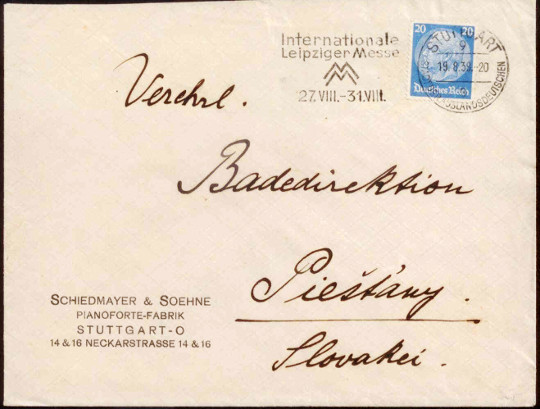 Internationale
Leipziger Messe
27.VIII.–31.VIII.
20 20
Deutsches Reich
STUTTGART
9
19.8.39.-20
AUSLANDSDEUTSCHEN
Verehrl.
Badedirektion
Piešťany.
Slovakei.
SCHIEDMAYER & SOEHNE
PIANOFORTE-FABRIK
STUTTGART-O
14 & 16 NECKARSTRASSE 14 & 16